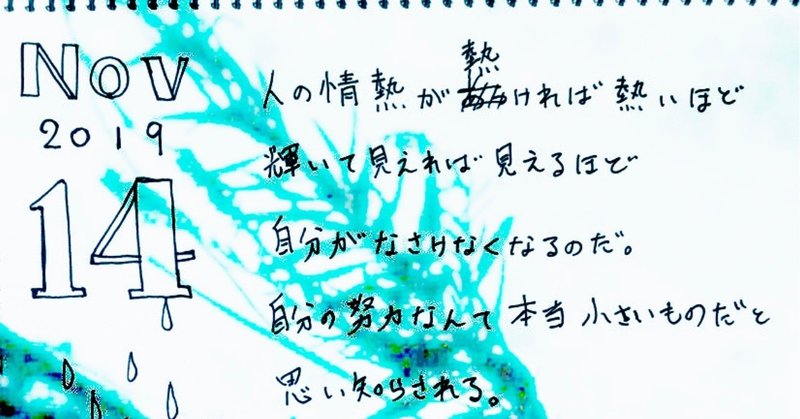 Nov
2019
14
人の情熱が熱ければ熱いほど
輝いて見えれば見えるほど
自分がなさけなくなるのだ。
自分の努力なんて本当小さいものだと
思い知らされる。